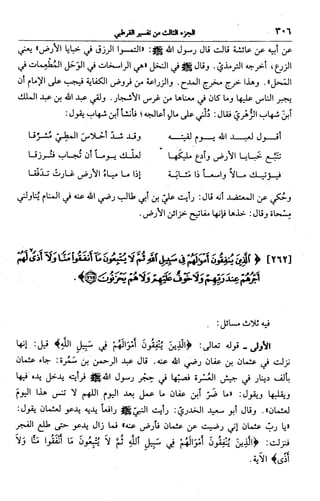 ٣٠٦ الجزء الثالث من تفسير القرطبي
عن أبيه عن عائشة قالت قال رسول الله ﷺ: «التمسوا الرزق في خبايا الأرض» يعني
الزرع، أخرجه الترمذي. وقال ﷺ في النخل «هي الراسخات في الوَحْل المُطْعِمات في
المَحْل». وهذا خرج مخرج المدح. والزراعة من فروض الكفاية فيجب على الإمام أن
يجبر الناس عليها وما كان في معناها من غرس الأشجار. ولقي عبد الله بن عبد الملك
ابنَ شهاب الزُّهْريّ فقال: دُلّني على مالٍ أعالجه؛ فأنشأ ابن شهاب يقول:
أقــول لعبــد اللّٰه يــوم لقيتــه وقد شدّ أحْلاسَ المطيّ مُشرّقا
تتبّع خَبــايــا الأرض وادع مليكهــا لعلّــك يــومــاً أن تُجــاب فتُــرزقــا
فيــؤتيــك مــالاً واسعــاً ذا مَثــابَـة إذا مـا ميـاهُ الأرض غـارتْ تـدفّقـا
وحُكي عن المعتضد أنه قال: رأيت عليّ بن أبي طالب رضي الله عنه في المنام يُناولني
مِسْحاة وقال: خذها فإنها مفاتيح خزائن الأرض.
[٢٦٢] ﴿ الَّذِينَ يُنفِقُونَ أَمْوَالَهُمْ فِي سَبِيلِ اللَّهِ ثُمَّ لَا يُتْبِعُونَ مَا أَنفَقُوا مَنًّا وَلَا أَذًى لَّهُمْ
أَجْرُهُمْ عِندَ رَبِّهِمْ وَلَا خَوْفٌ عَلَيْهِمْ وَلَا هُمْ يَحْزَنُونَ ﴾.
فيه ثلاث مسائل:
الأولى ـ قوله تعالى: ﴿الَّذِينَ يُنْفِقُونَ أَمْوَالَهُمْ فِي سَبِيلِ اللَّهِ﴾ قيل: إنها
نزلت في عثمان بن عفان رضي الله عنه. قال عبد الرحمن بن سَمُرة: جاء عثمان
بألف دينار في جيش العُسْرة فصبّها في حِجْر رسول الله ﷺ فرأيته يدخل يده فيها
ويقلبها ويقول: «ما ضرّ ابن عفان ما عمل بعد اليوم اللهم لا تنس هذا اليوم
لعثمان». وقال أبو سعيد الخدريّ: رأيت النبيّ ﷺ رافعاً يديه يدعو لعثمان يقول:
«يا ربّ عثمان إني رضيت عن عثمان فأرض عنه» فما زال يدعو حتى طلع الفجر
فنزلت: ﴿الَّذِينَ يُنْفِقُونَ أَمْوَالَهُمْ فِي سَبِيلِ اللَّهِ ثُمَّ لاَ يُتْبِعُونَ مَا أَنْفَقُوا مَنًّا وَلاَ
أَذًى﴾ الآية.